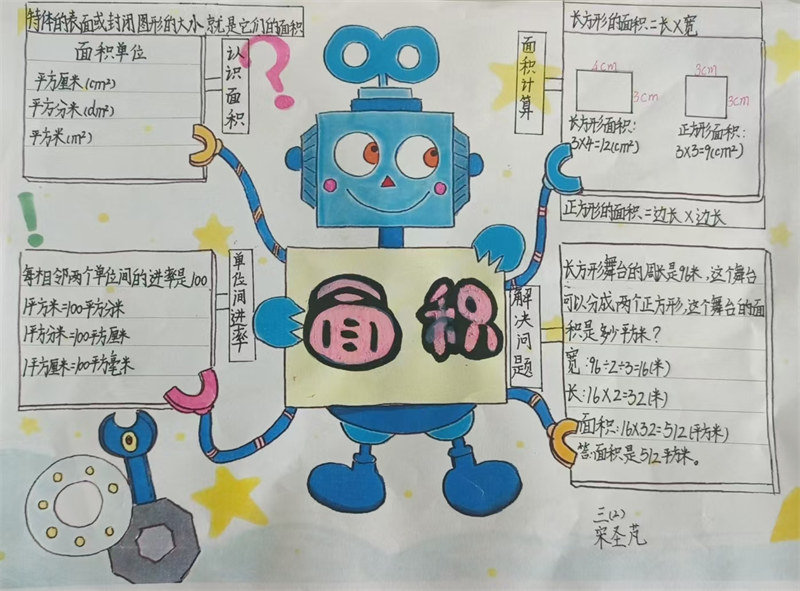 特体的表面或封闭图形的大小,就是它们的面积
面积单位
平方厘米(cm²)
平方分米(dm²)
平方米(m²)
认识面积
?
面积计算
长方形的面积=长×宽
4cm
3cm
3cm
3cm
长方形面积:
3×4=12(cm²)
正方形面积:
3×3=9(cm²)
正方形的面积=边长×边长
!
每相邻两个单位间的进率是100
1平方米=100平方分米
1平方分米=100平方厘米
1平方厘米=100平方毫米
单位间进率
面积
解决问题
长方形舞台的周长是96米,这个舞台
可以分成两个正方形,这个舞台的面
积是多少平方米?
宽:96÷2÷3=16(米)
长:16×2=32(米)
面积:16×32=512(平方米)
答:面积是512平方米。
三(2)
宋圣芃